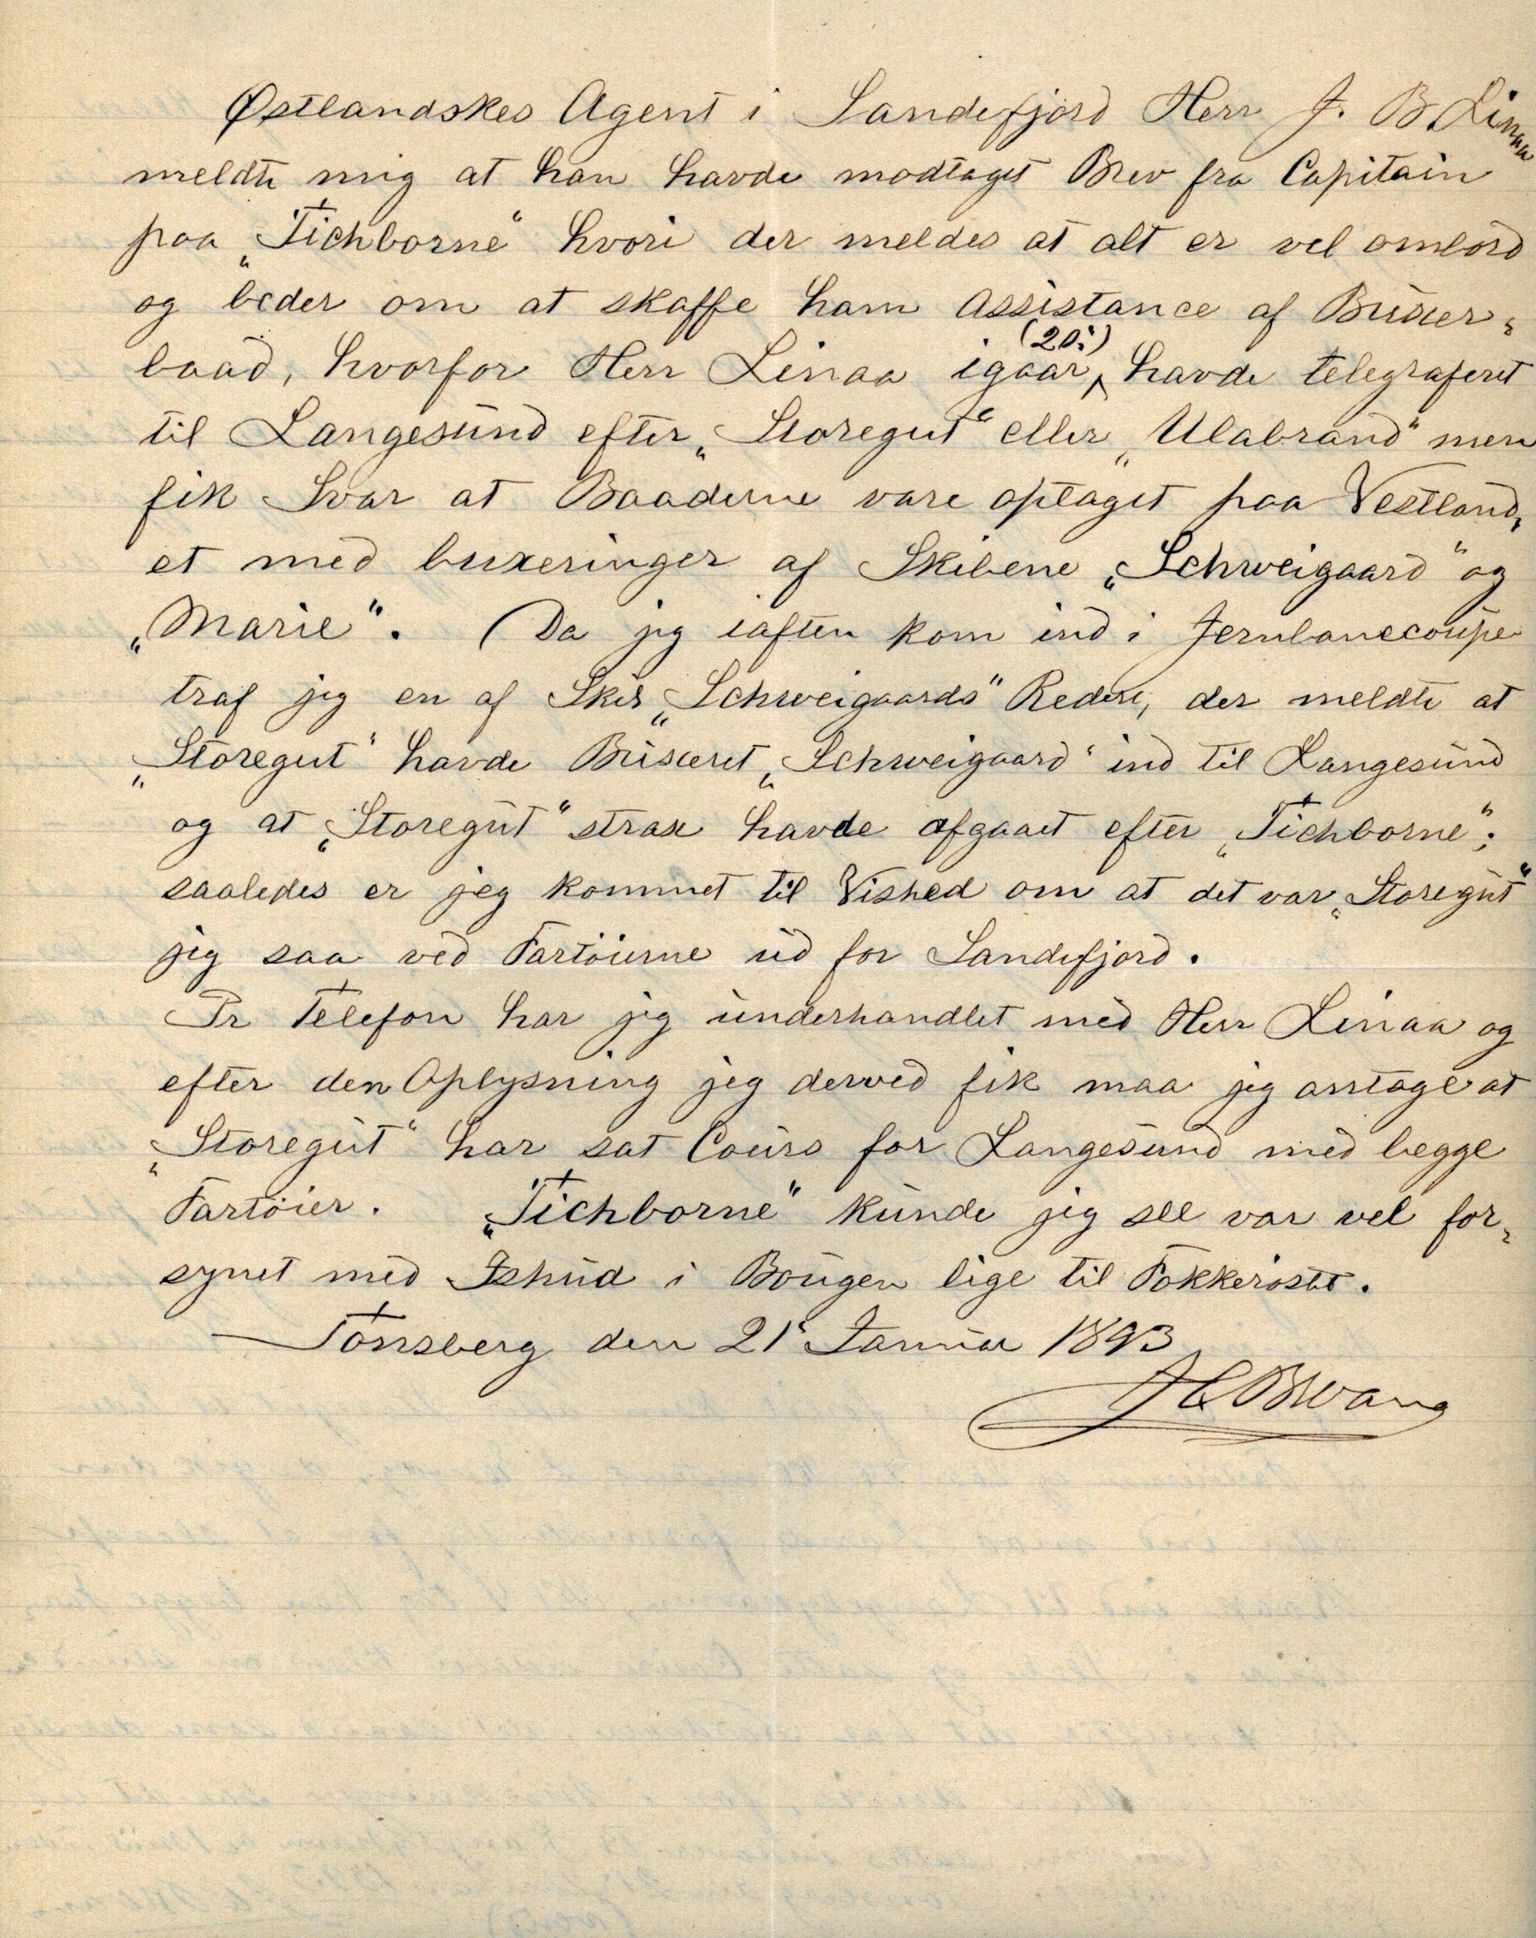 Østlandskes Agent i Sandefjord Herr J. B. Linaa
meldte mig at han havde modtaget Brev fra Capitain
paa „Tichborne“ hvori der meldes at alt er vel ombord
og beder om at skaffe ham Assistance af Buxer-
baad, hvorfor Herr Linaa igaar (20:) havde telegraferet
til Langesund efter „Storegut“ eller „Ulabrand“ men
fik Svar at Baaderne vare optaget paa Vestland,
et med buxeringer af Skibene „Schweigaard“ og
„Marie“. (Da jeg iaften kom ind i Jernbanecoupe
traf jeg en af Skib „Schweigaards“ Redere, der meldte at
„Storegut“ havde Buxeret „Schweigaard“ ind til Langesund
og at „Storegut“ strax havde afgaaet efter „Tichborne“;
saaledes er jeg kommet til Vished om at det var „Storegut“
jeg saa ved Fartøierne ud for Sandefjord.
Pr Telefon har jeg underhandlet med Herr Linaa og
efter den Oplysning jeg derved fik maa jeg antage at
„Storegut“ har sat Cours for Langesund med begge
Fartøier. „Tichborne“ kunde jeg see var vel for-
synet med Ishud i Bougen lige til Fokkerøstet.
Tønsberg den 21 Januar 1893
H C Bwang